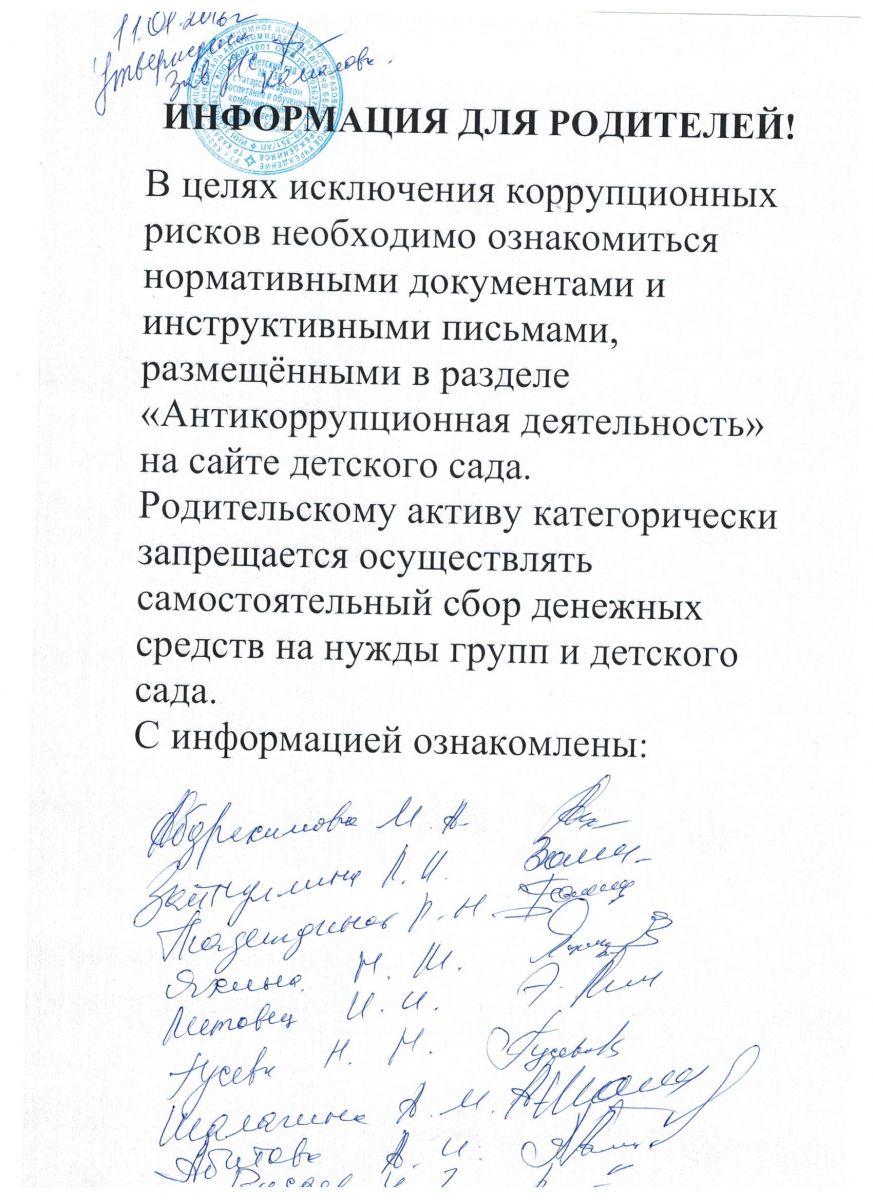 11.01.2016г
Утверждаю
Зав
Детский сад
с татарским языком
воспитания и обучения
ИНФОРМАЦИЯ ДЛЯ РОДИТЕЛЕЙ!
В целях исключения коррупционных
рисков необходимо ознакомиться
нормативными документами и
инструктивными письмами,
размещёнными в разделе
«Антикоррупционная деятельность»
на сайте детского сада.
Родительскому активу категорически
запрещается осуществлять
самостоятельный сбор денежных
средств на нужды групп и детского
сада.
С информацией ознакомлены:
Абдрахимова М. А.
Зайнуллина Л. И.
Н.
Яхина Н. Ш.
И. И.
Гусева Н. Н. Гусева
Шалагина А. М.
Абитова А. И.